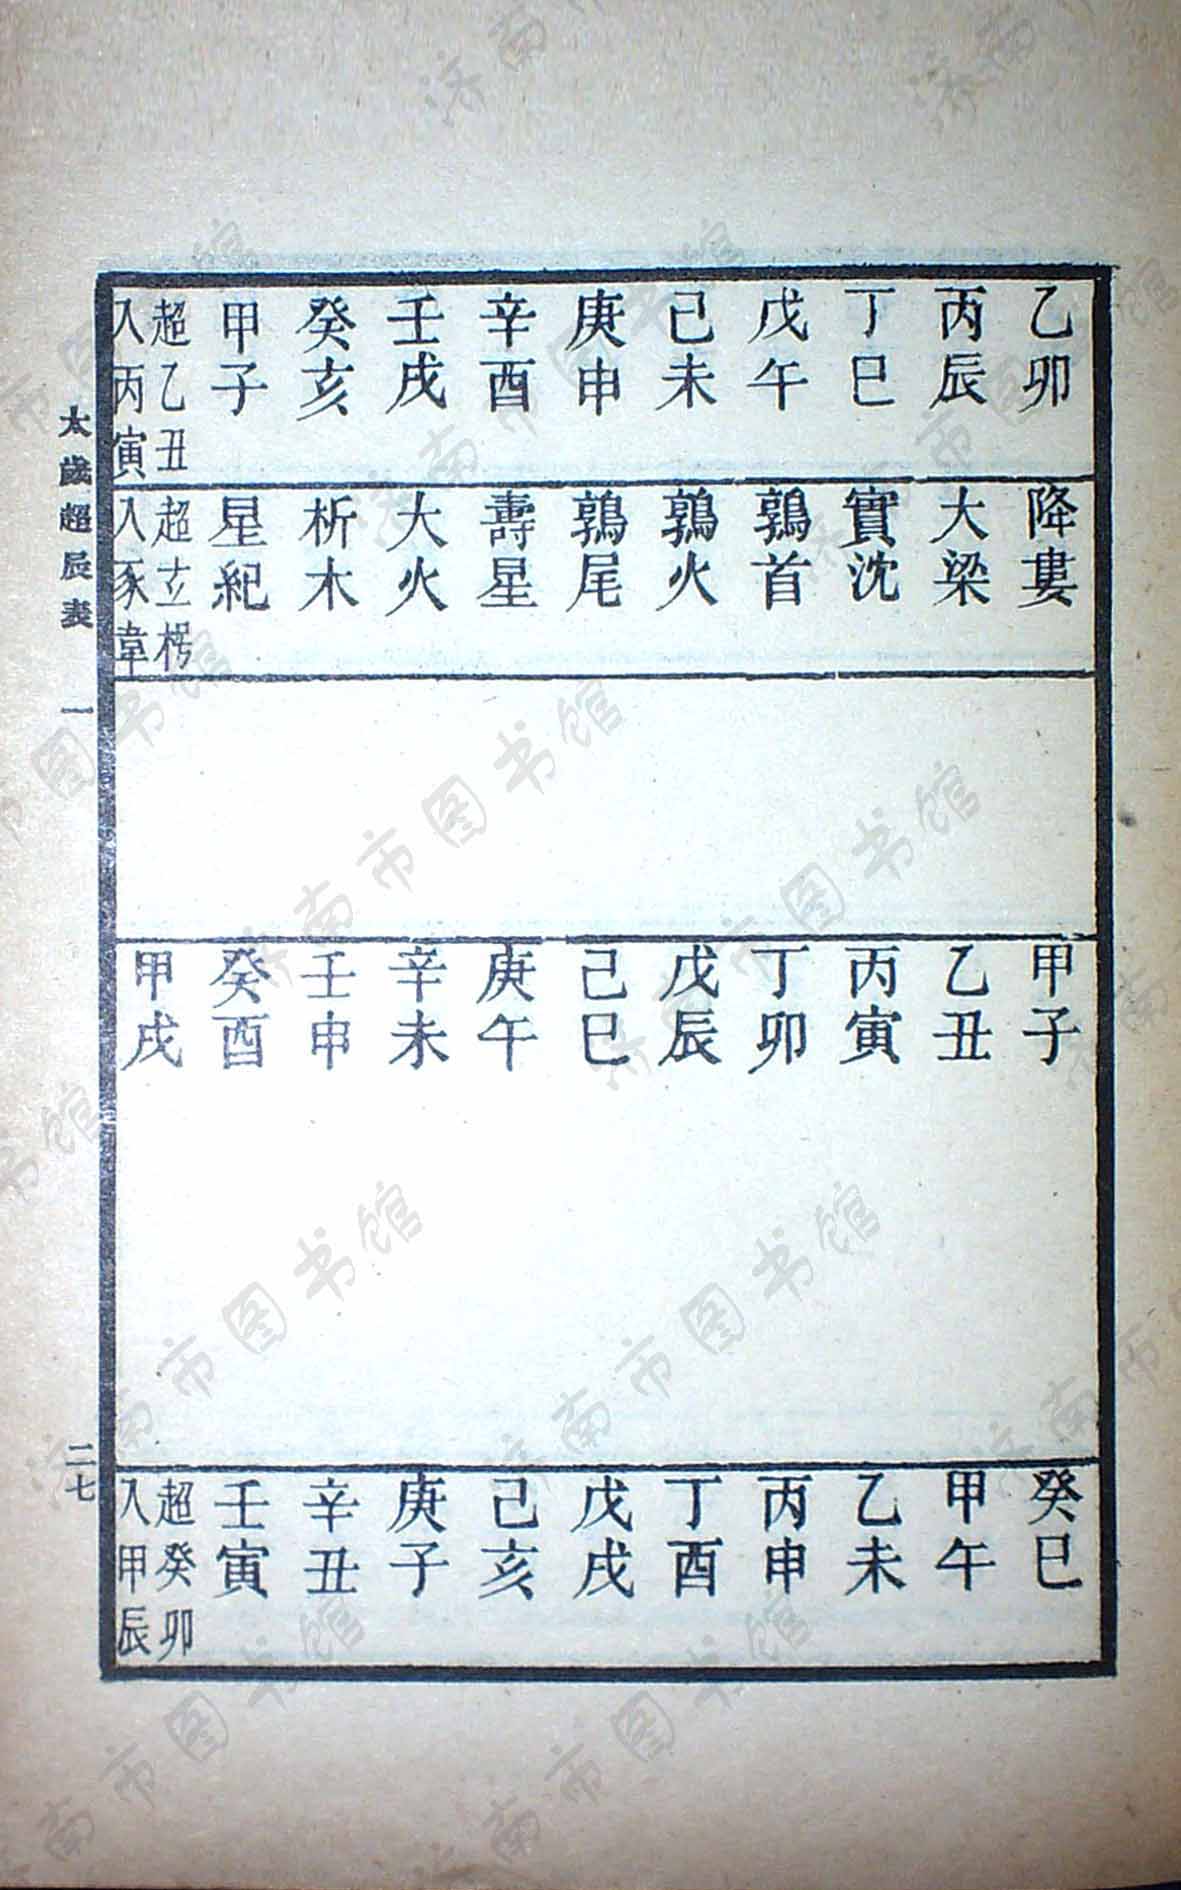 乙卯 降婁 甲子 癸巳
丙辰 大梁 乙丑 甲午
丁巳 實沈 丙寅 乙未
戊午 鶉首 丁卯 丙申
己未 鶉火 戊辰 丁酉
庚申 鶉尾 己巳 戊戌
辛酉 壽星 庚午 己亥
壬戌 大火 辛未 庚子
癸亥 析木 壬申 辛丑
甲子 星紀 癸酉 壬寅
超乙丑 超玄枵 甲戌 超癸卯
入丙寅 入豕韋 入甲辰
太歲超辰表 一 二七
济南市图书馆